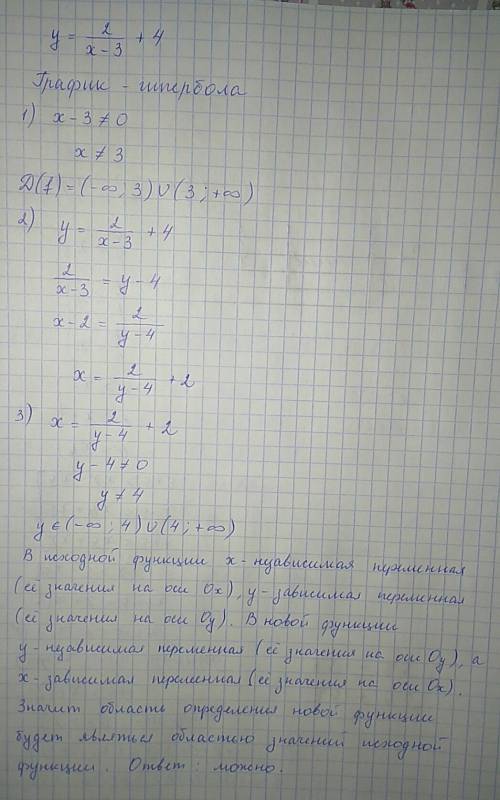 y = 2/(x-3) + 4
График - гипербола
1) x - 3 ≠ 0
x ≠ 3
D(f) = (-∞; 3) ∪ (3; +∞)
2) y = 2/(x-3) + 4
2/(x-3) = y - 4
x - 2 = 2/(y-4)
x = 2/(y-4) + 2
3) x = 2/(y-4) + 2
y - 4 ≠ 0
y ≠ 4
y ∈ (-∞; 4) ∪ (4; +∞)
В исходной функции x - независимая переменная
(её значения на оси Ox), y - зависимая переменная
(её значения на оси Oy). В новой функции
y - независимая переменная (её значения на оси Oy), а
x - зависимая переменная (её значения на оси Ox).
Значит область определения новой функции
будет являться областью значений исходной
функции. Ответ: можно.